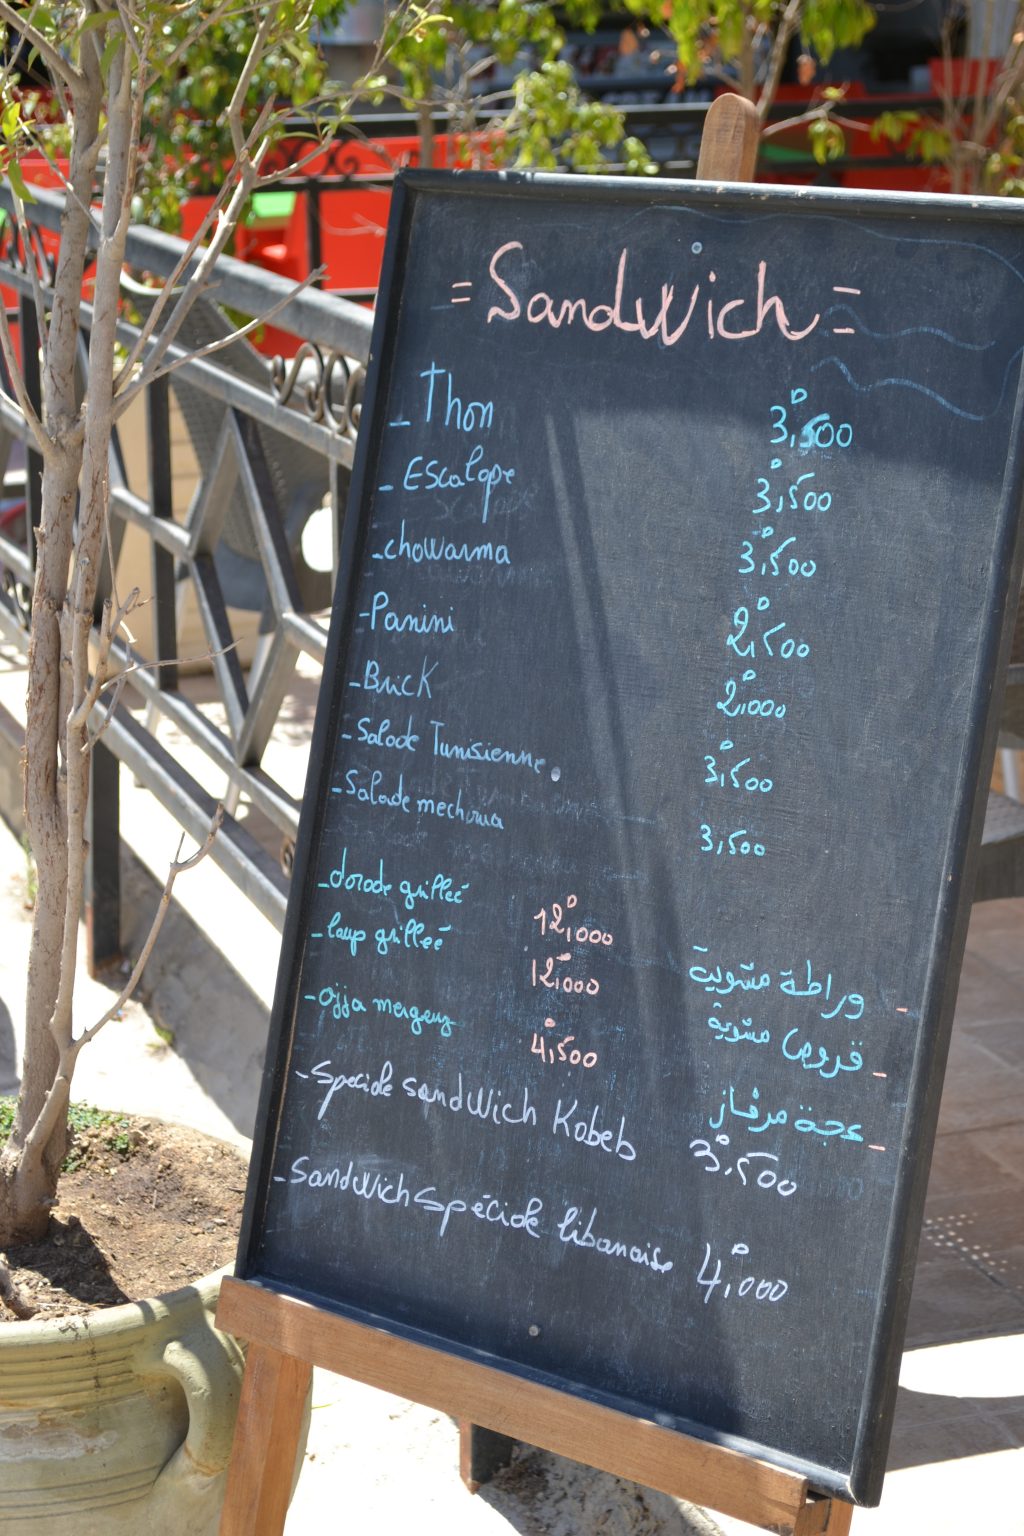 = Sandwich =
- Thon 3,500
- Escalope 3,500
- chowarma 3,500
- Panini 2,500
- Brick 2,000
- Salade Tunisienne. 3,500
- Salade mechouia 3,500
- dorade grilleé 12,000
- وراطة مشوية
- loup grilleé 12,000
- قروص مشوية
- ojja merguez 4,500
- عجة مرقاز
- Speciale sandwich Kabeb 3,500
- Sandwich spéciale libanaise 4,000